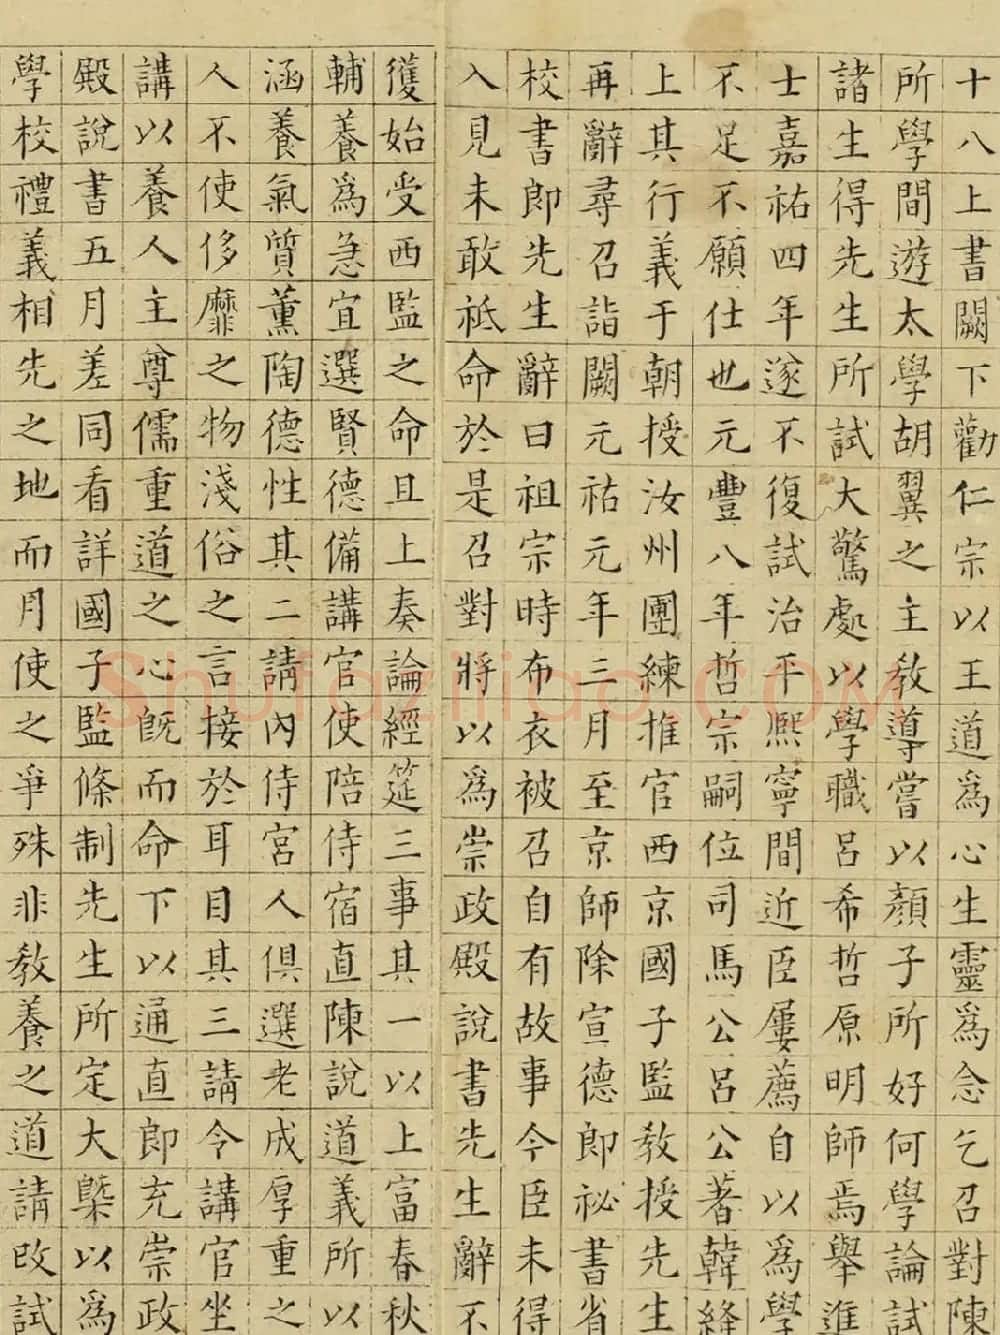 十八上書闕下勸仁宗以王道爲心生靈爲念乞召對陳
所學間遊太學胡翼之主教導嘗以顏子所好何學論試
諸生得先生所試大驚處以學職呂希哲原明師焉舉進
士嘉祐四年遂不復試治平熙寧間近臣屢薦自以爲學
不足不願仕也元豐八年哲宗嗣位司馬公呂公著韓絳
上其行義于朝授汝州團練推官西京國子監教授先生
再辭尋召詣闕元祐元年三月至京師除宣德郎祕書省
校書郎先生辭曰祖宗時布衣被召自有故事今臣未得
入見未敢祗命於是召對將以爲崇政殿說書先生辭不
獲始受西監之命且上奏論經筵三事其一以上富春秋
輔養爲急宜選賢德備講官使陪侍宿直陳說道義所以
涵養氣質薰陶德性其二請內侍宮人俱選老成厚重之
人不使侈靡之物淺俗之言接於耳目其三請令講官坐
講以養人主尊儒重道之心旣而命下以通直郎充崇政
殿說書五月差同看詳國子監條制先生所定大槩以爲
學校禮義相先之地而月使之爭殊非教養之道請改試
Shufaziliao.com